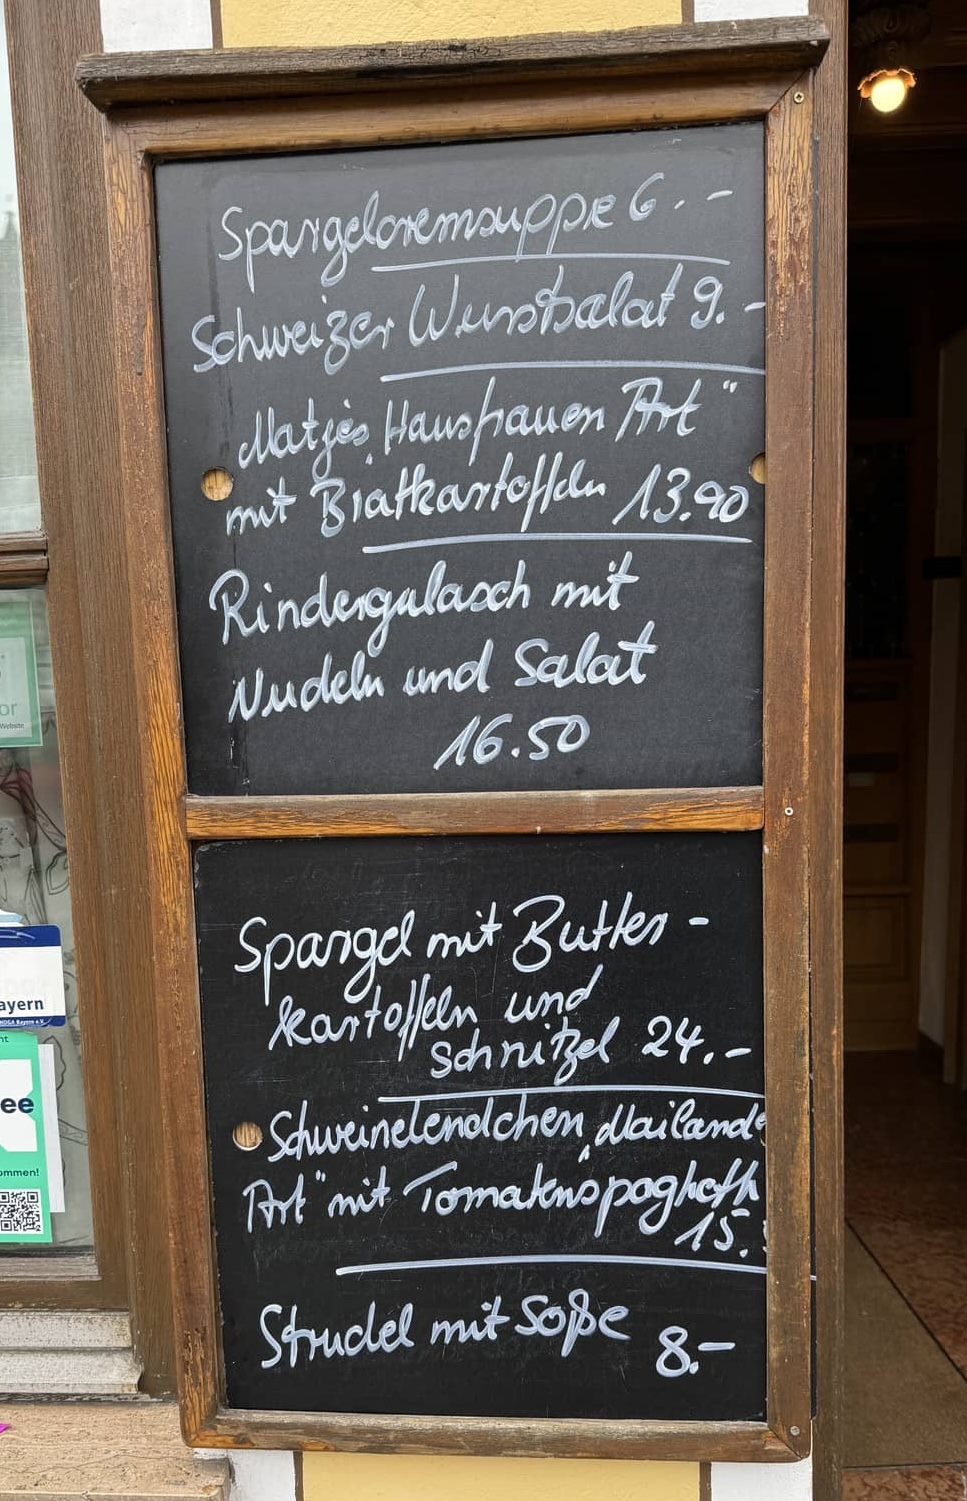 Spargelcremsuppe 6.-
Schweizer Wurstsalat 9.-
Matjes „Hausfrauen Art"
mit Bratkartoffeln 13.90
Rindergulasch mit
Nudeln und Salat
16.50
Spargel mit Butter-
kartoffeln und
Schnitzel 24.-
Schweinelendchen „Mailände
Art" mit Tomatenspaghetti
15.
Strudel mit Soße
8.-
or
Website
ayern
HOGA Bayern e.V.
ht
ee
ommen!